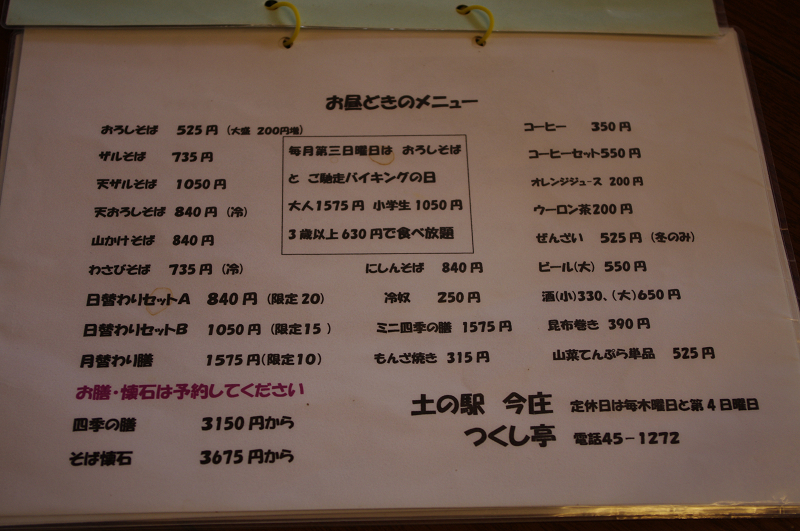 お昼どきのメニュー
おろしそば 525円 (大盛 200円増)
ザルそば 735円
天ザルそば 1050円
天おろしそば 840円 (冷)
山かけそば 840円
わさびそば 735円 (冷)
日替わりセットA 840円 (限定20)
日替わりセットB 1050円 (限定15)
月替わり膳 1575円(限定10)
お膳・懐石は予約してください
四季の膳 3150円から
そば懐石 3675円から
毎月第三日曜日は おろしそば
と ご馳走バイキングの日
大人1575円 小学生1050円
3歳以上630円で食べ放題
にしんそば 840円
冷奴 250円
ミニ四季の膳 1575円
もんざ焼き 315円
コーヒー 350円
コーヒーセット550円
オレンジジュース 200円
ウーロン茶200円
ぜんざい 525円 (冬のみ)
ビール(大) 550円
酒(小)330、(大)650円
昆布巻き 390円
山菜てんぷら単品 525円
土の駅 今庄 定休日は毎木曜日と第4日曜日
つくし亭 電話45-1272